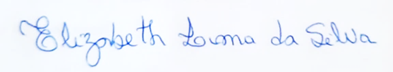 Elizabeth Luma da Silva